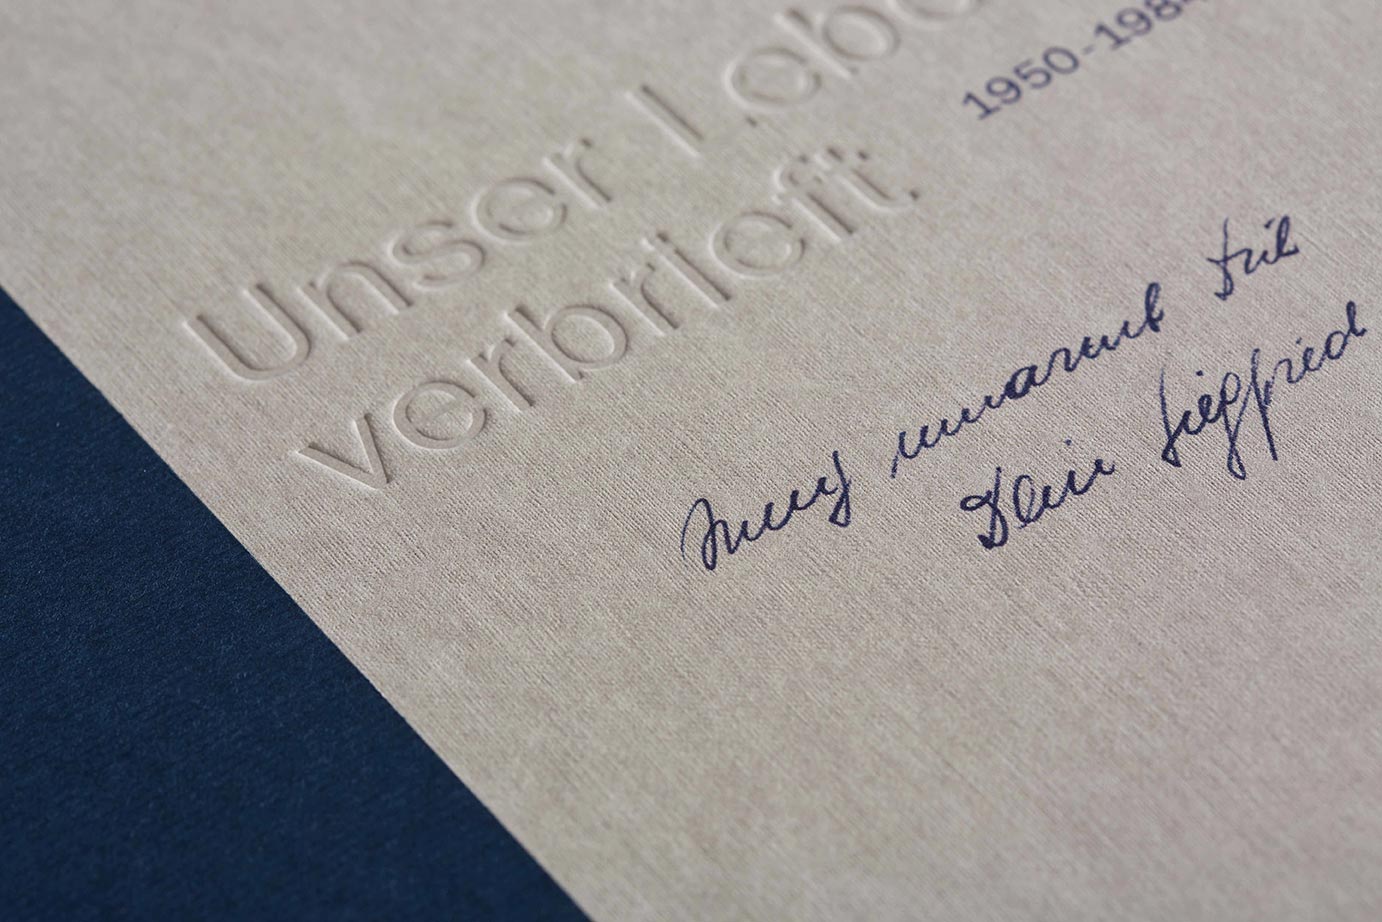 Unser Lebe
verbrieft.
1950-1984
Innig umarmt Dich
Dein Siegfried